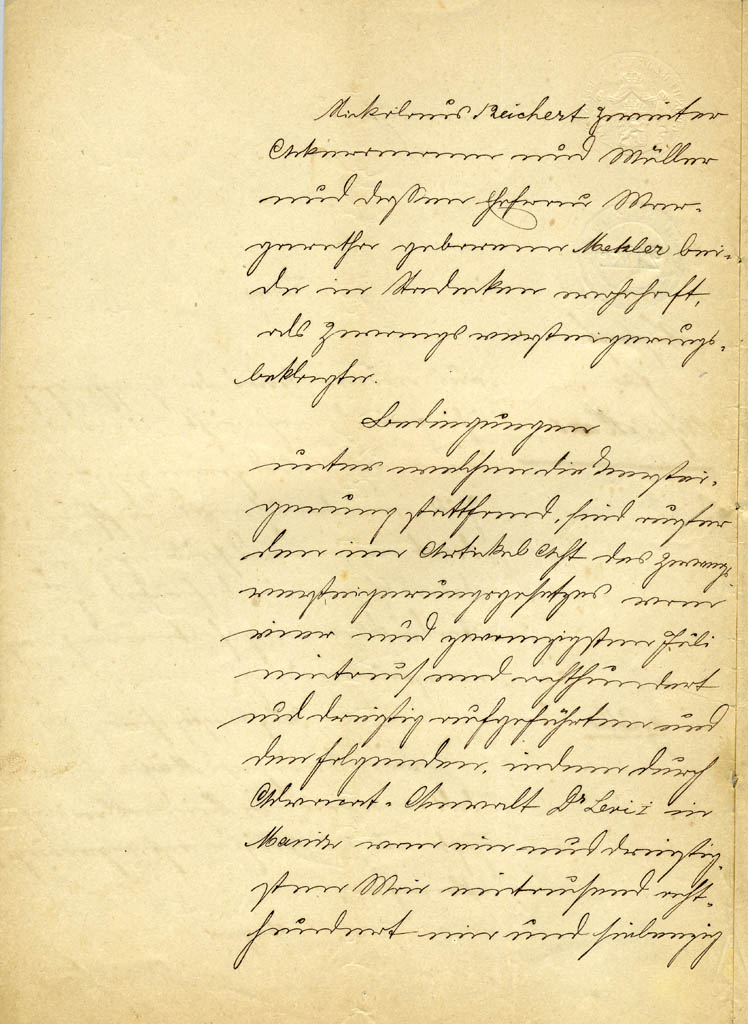 Nikolaus Reichert Zweiter
Ackersmann und Müller
und dessen Ehefrau Mar-
garethe geborene Metzler bei-
de in Stadecken wohnhaft,
als Zwangsversteigerungs-
beklagte.
Bedingungen
unter welchen die Verstei-
gerung stattfand, sind außer
den im Artikel Acht des Zwangs
versteigerungsgesetzes vom
vier und zwanzigsten Juli
eintausend achthundert
und dreißig aufgeführten und
den folgenden, indem durch
Advocat-Anwalt Dr Levi I in
Mainz vom ein und dreißig-
sten Mai eintausend acht-
hundert ein und siebenzig